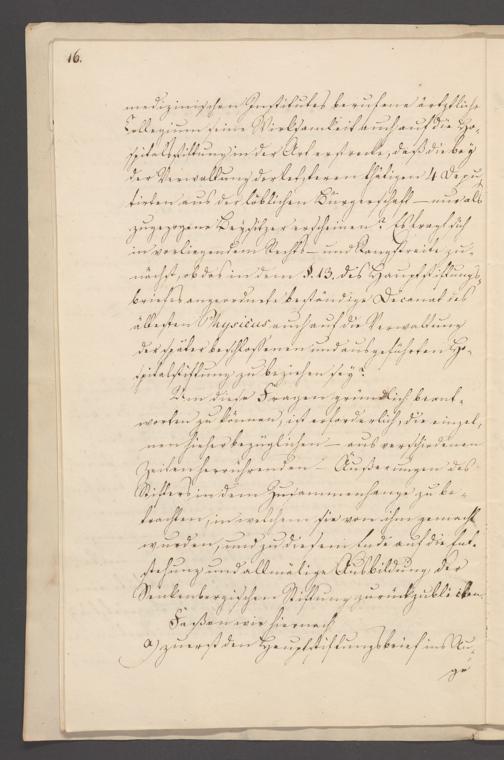 16.
medizinischen Institutes berufene ärztliche
Collegium seine Wirksamkeit auch auf die Ho-
spitalstiftung in der Art erstrecke, daß die bey
der Verwaltung der letzteren thätigen 4 Depu-
tirten aus der löblichen Bürgerschaft – nur als
zugezogene Beysitzer erscheinen? Es fragt sich
in vorliegendem Rechts- und Rangstreite zu-
nächst, ob das in dem §. 13. des Hauptstiftungs-
briefes angeordnete beständige Decanat des
ältesten Physicus auch auf die Verwaltung
der später beschlossenen und ausgeführten Ho-
spitalstiftung zu beziehen sey?
Um diese Fragen gründlich beant-
worten zu können, ist erforderlich, die einzel-
nen hieher bezüglichen – aus verschiedenen
Zeiten herrührenden – Äußerungen des
Stifters in dem Zusammenhange zu be-
trachten, in welchem sie von ihm gemacht
wurden, und zu diesem Ende auf die Ent-
stehung und allmälige Ausbildung der
Senkenbergischen Stiftung zurückzublicken.
Fassen wir hiernach
a) zuerst den Hauptstiftungsbrief ins Au-
ge